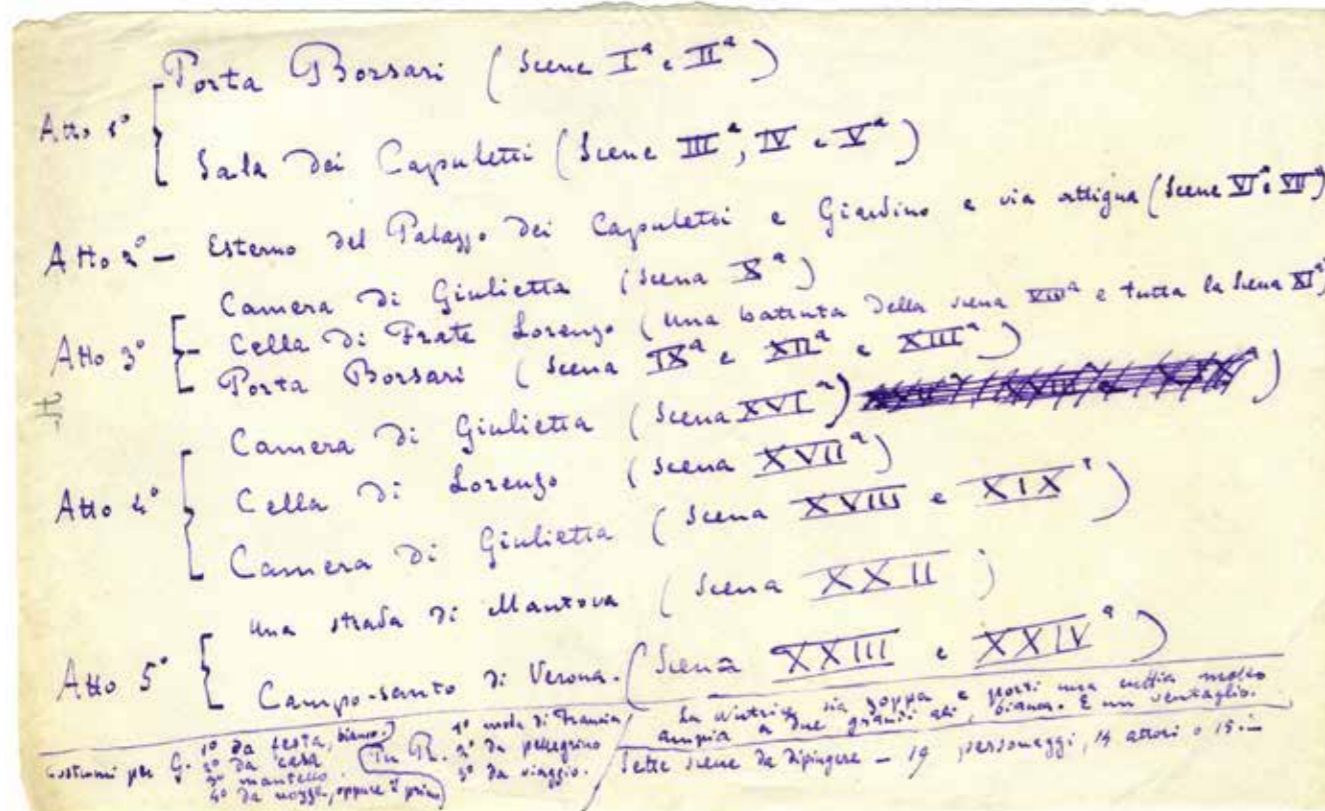 Porta Borsari (Scene Iª e IIª)
Atto 1º
Sala dei Capuletti (Scene IIIª, IV e Vª)
Atto 2º — Esterno del Palazzo dei Capuletti e Giardino e via attigua (Scene VIª e VIIª)
Camera di Giulietta (Scena Xª)
Atto 3º — Cella di Frate Lorenzo (una battuta della scena e tutta la Scena XIª)
Porta Borsari (Scena IXª e XIIª e XIIIª)
Camera di Giulietta (Scena XVIª)
Atto 4º Cella di Lorenzo (Scena XVIIª)
Camera di Giulietta (Scena XVIII e XIXª)
Una strada di Mantova (Scena XXII)
Atto 5º
Campo-santo di Verona. (Scena XXIII e XXIVª)
Costumi per G. 1º da festa, bianco.
2º da casa
3º mantello.
4º da nozze, oppure il primo
Per R. 1º moda di Francia
2º da pellegrino
3º da viaggio.
La Nutrice sia zoppa e porti una cuffia molto
ampia a due grandi ali, bianca. E un ventaglio.
Sette scene da dipingere — 19 personaggi, 14 attori o 15